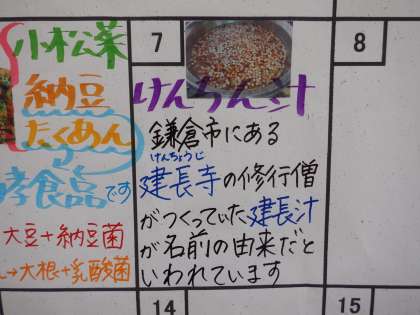 小松菜
納豆
たくあん
酵食品です
大豆+納豆菌
→大根+乳酸菌
7
けんちん汁
鎌倉市にある
けんちょうじ
建長寺の修行僧
がつくっていた建長汁
が名前の由来だと
いわれています
8
14
15